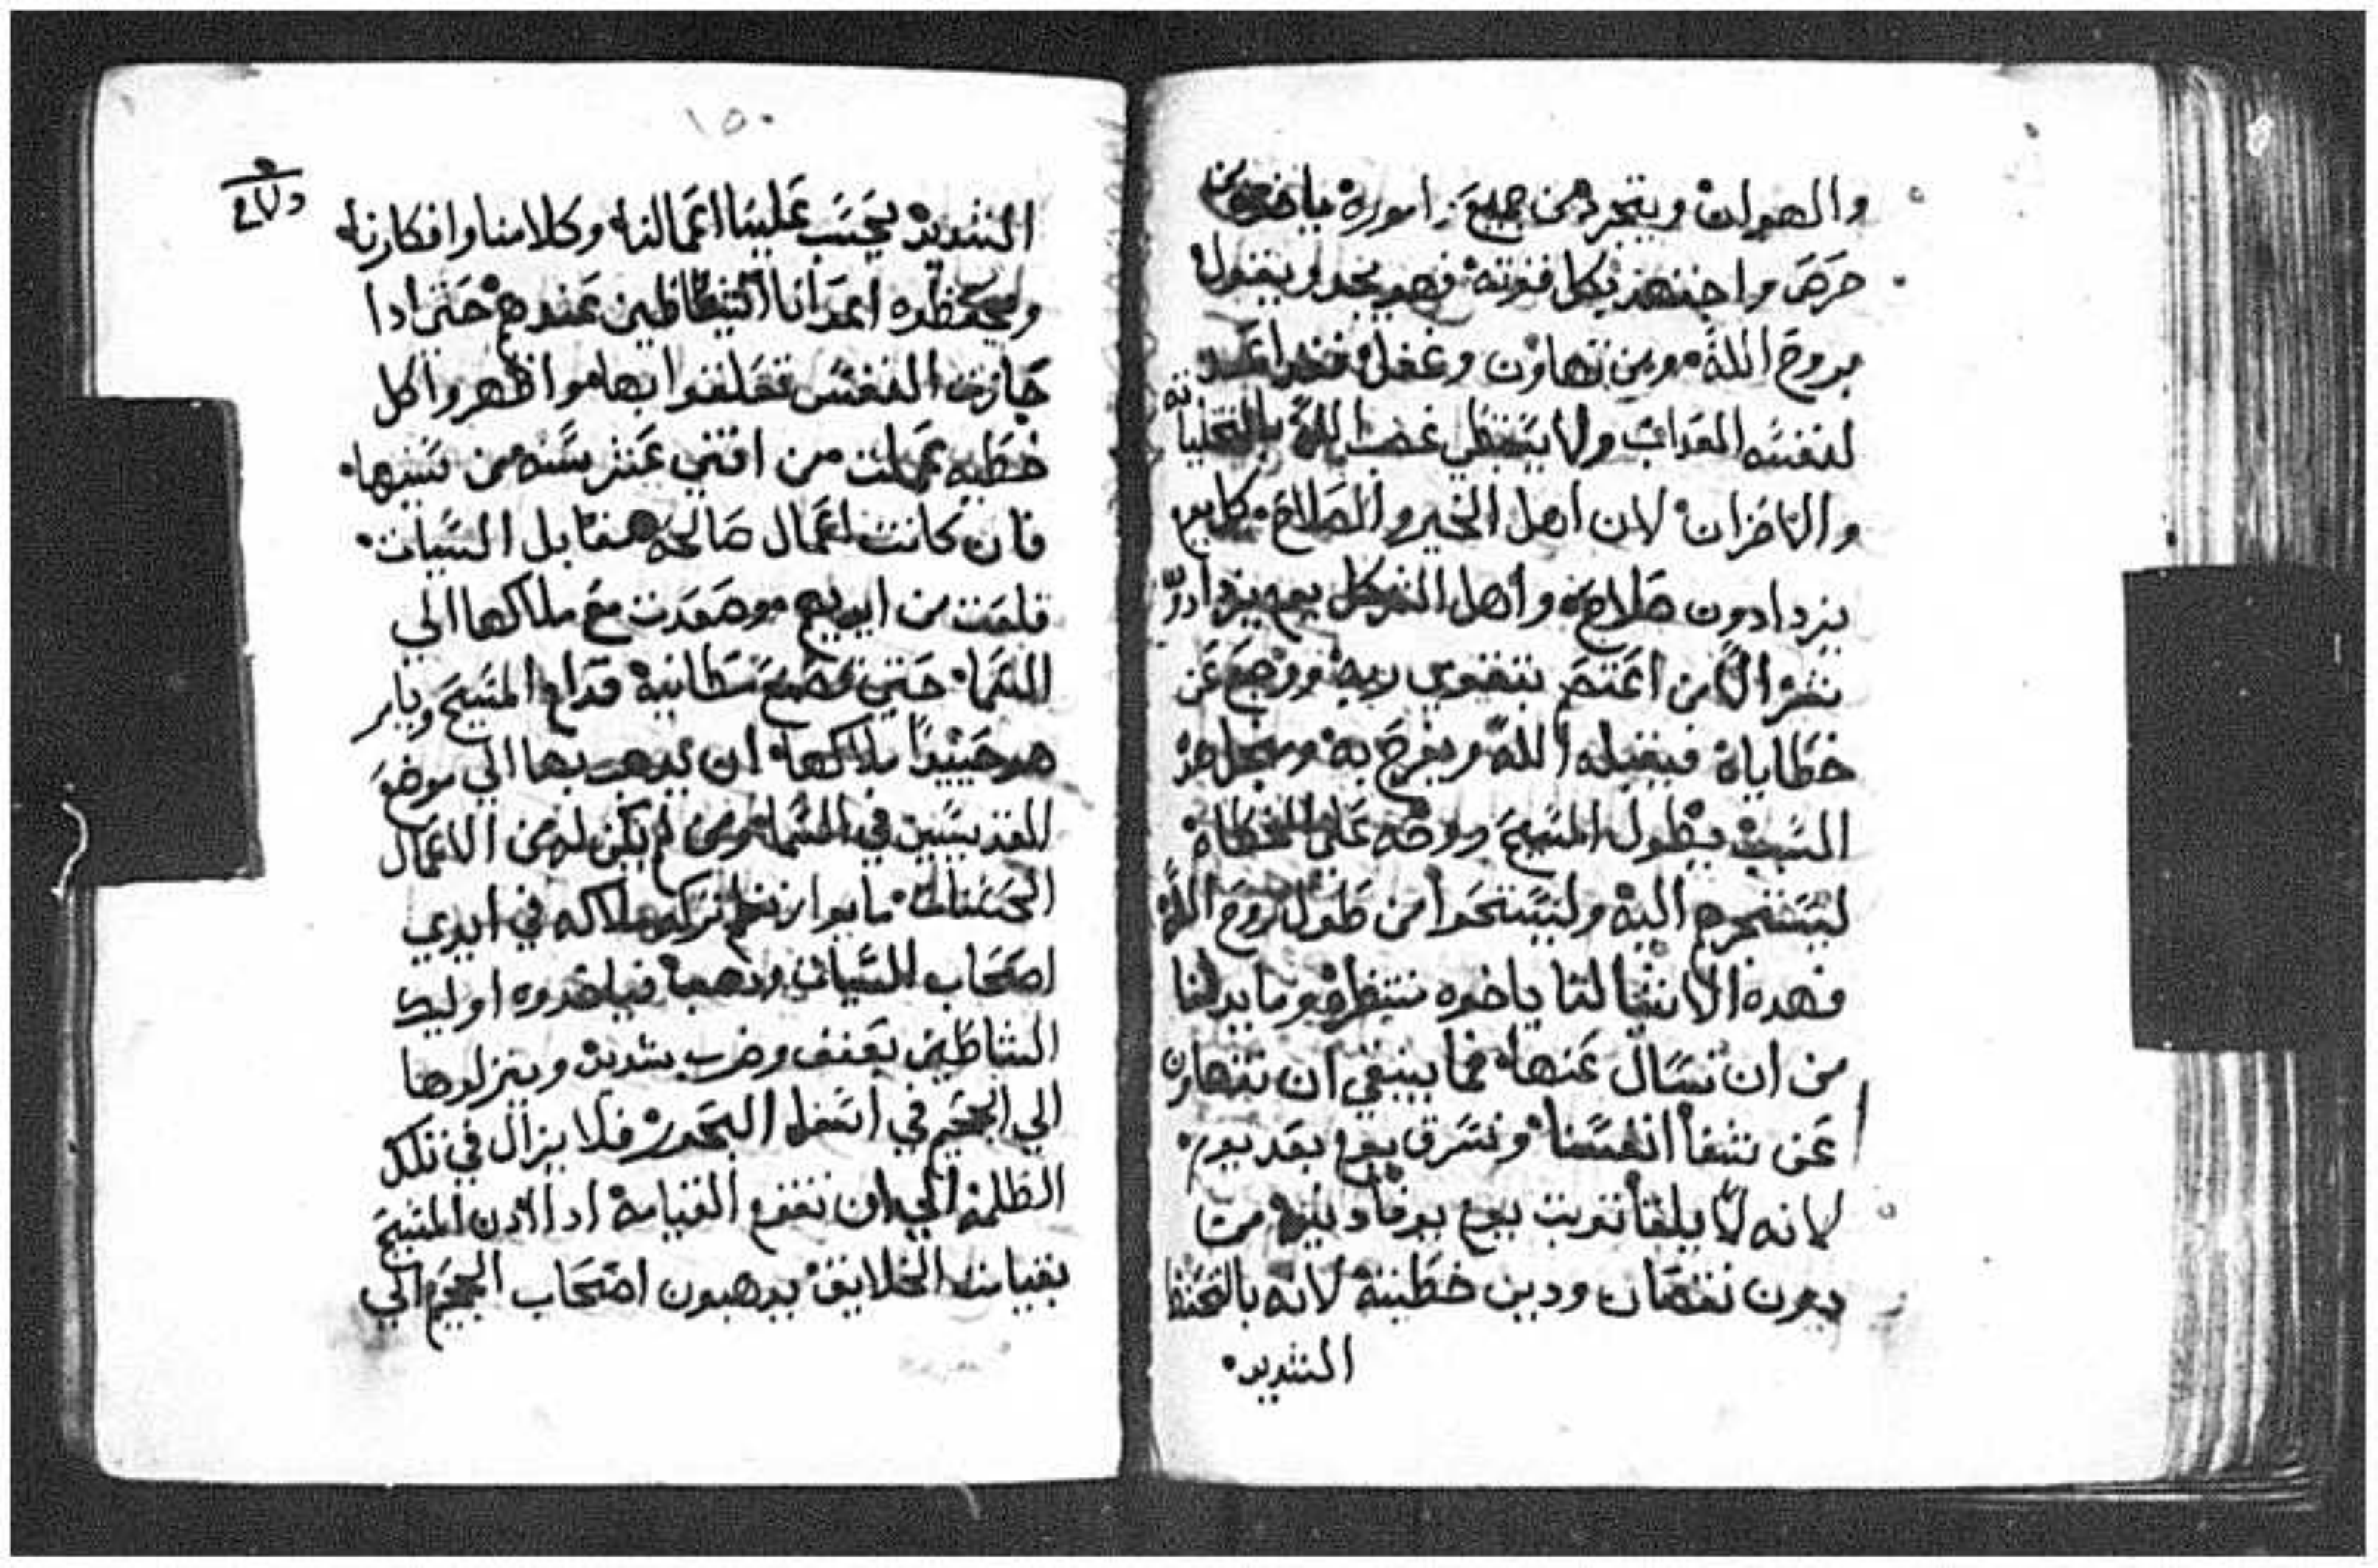 والهوان ويتجرد من جميع اموره ياخوه من
حرص واجتهد بكل قوته فهو يجد ويقول
بروح الله ومن تهاون وغفل فقد اعد
لنفسه العداب ولا يستبطي غضب الله
والاحزان لان اهل الخير والصلاح كل يوم
يزدادون صلاح واهل الشر كل يوم يزدادو
شر الا من اعتصم بتقوي ربه ورجع عن
خطاياه فيقبله الله ويفرح به ومن اجل هذ
السبب يطول المسيح روحه علي الخطاه
ليستجرهم اليه وليستحوا من طول روح الله
فهده الاشيا لنا ياخوه ننتظره وما بد لنا
من ان نسال عنها فما ينبغي ان نتهاون
عن شفا انفسنا ونسرق يوم بعد يوم
لانه لا يلقا تعريت يوم يوفا ودينه مرت
بدون نقصان ودين خطيته لانه بالتحفظ
الشديد
١٥٠
الشديد يحسب علينا اعمالنا وكلامنا وافكارنا
ويحفظوه اعدانا الشياطين عندهم حتي ادا
جازت النفس تعلقوا بها واظهروا كل
خطيه عملت من اتني عشر سنه من سنينها
فان كانت اعمال صالحه مقابل السيات
قلعت من ايديهم وصعدت مع ملاكها الي
السما حتي تصنع مطانيه قدام المسيح ويامر
هو حينيدا ملاكها ان يدهب بها الي موضع
القديسين في السما ومن لم يكن له من الاعمال
الحسنات ما يوازن لم تركه ملاكه في ايدي
اصحاب السيات ودهب فياخدوه اوليك
الشياطين بعنف وضرب شديد وينزلوها
الي الجحيم في اسفل البحور فلا يزال في تلك
الظلمه الي ان تقوم القيامه ادا ادن المسيح
بقيامت الخلايق يدهبون اصحاب الجحيم الي